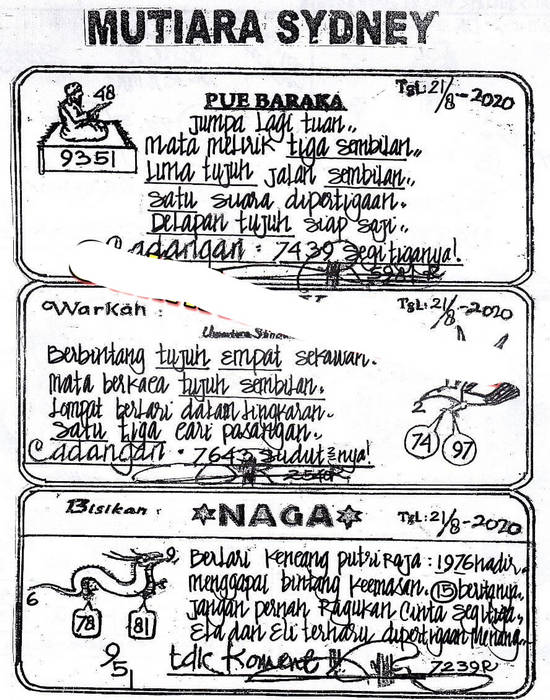 MUTIARA SYDNEY
Tgl: 21/8-2020
48
9351
PUE BARAKA
Jumpa lagi tuan,,
mata melirik tiga sembilan,,
Lima tujuh jalan sembilan,,
Satu suara dipertigaan.
Delapan tujuh siap saji,,
Cadangan : 7439 segitiganya!
5981-R
Warkah :
Tgl: 21/8-2020
Berbintang tujuh empat sekawan.
mata berkaca tujuh sembilan.
Lompat berlari dalam lingkaran.
Satu tiga cari pasangan.
Cadangan . 7643 sudut²nya!
2540R
2
74 97
Bisikan :
☆NAGA☆
Tgl: 21/8-2020
9.
6
78 81
9
5
1
Berlari kencang putri raja : 1976 hadir.
menggapai bintang keemasan. 15 beritanya.
Jangan pernah Ragukan Cinta segitiga.
Ela dan Eli terharu dipertigaan menang.
tdk Koment !!
7239R